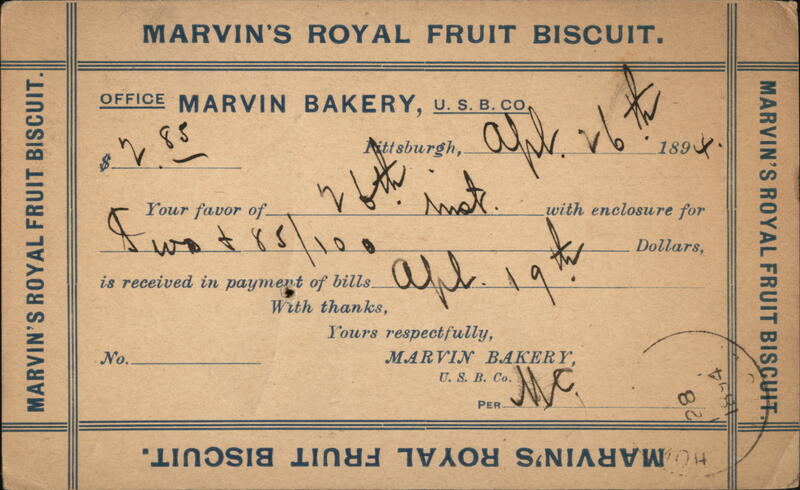 MARVIN'S ROYAL FRUIT BISCUIT.
MARVIN'S ROYAL FRUIT BISCUIT.
OFFICE MARVIN BAKERY, U. S. B. CO.
$ 2.85 Pittsburgh, Apl. 26th 1894.
Your favor of 26th inst. with enclosure for
Two & 85/100 Dollars,
is received in payment of bills Apl. 19th
With thanks,
Yours respectfully,
No. MARVIN BAKERY,
U. S. B. Co.
PER Mc.
28
MARVIN'S ROYAL FRUIT BISCUIT.
MARVIN'S ROYAL FRUIT BISCUIT.